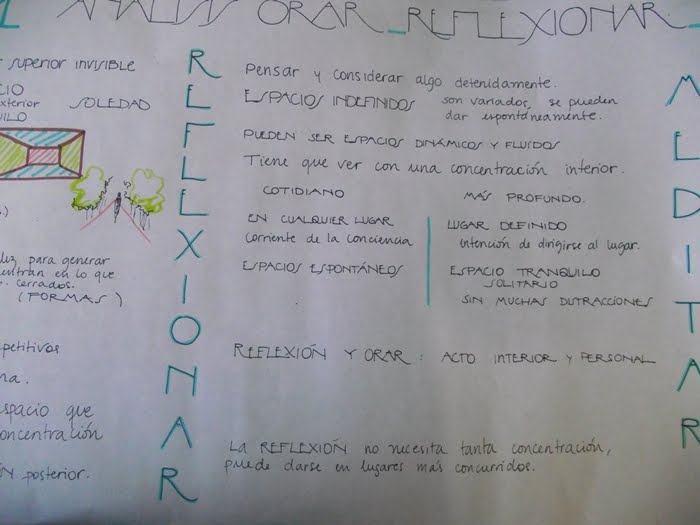 ANALISIS ORAR _ REFLEXIONAR _
SUPERIOR INVISIBLE
SOLEDAD
luz para generar
entran en lo que
cerrados.
(FORMAS)
espacio que
concentración
posterior.
REFLEXIONAR
Pensar y considerar algo detenidamente.
ESPACIOS INDEFINIDOS son variados, se pueden
dar espontáneamente.
PUEDEN SER ESPACIOS DINÁMICOS Y FLUIDOS
Tiene que ver con una concentración interior.
COTIDIANO
EN CUALQUIER LUGAR
corriente de la conciencia
ESPACIOS ESPONTÁNEOS
MÁS PROFUNDO.
LUGAR DEFINIDO
intención de dirigirse al lugar.
ESPACIO TRANQUILO
SOLITARIO
SIN MUCHAS DISTRACCIONES
REFLEXIÓN Y ORAR : ACTO INTERIOR Y PERSONAL
La REFLEXIÓN no necesita tanta concentración,
puede darse en lugares más concurridos.
MEDITAR